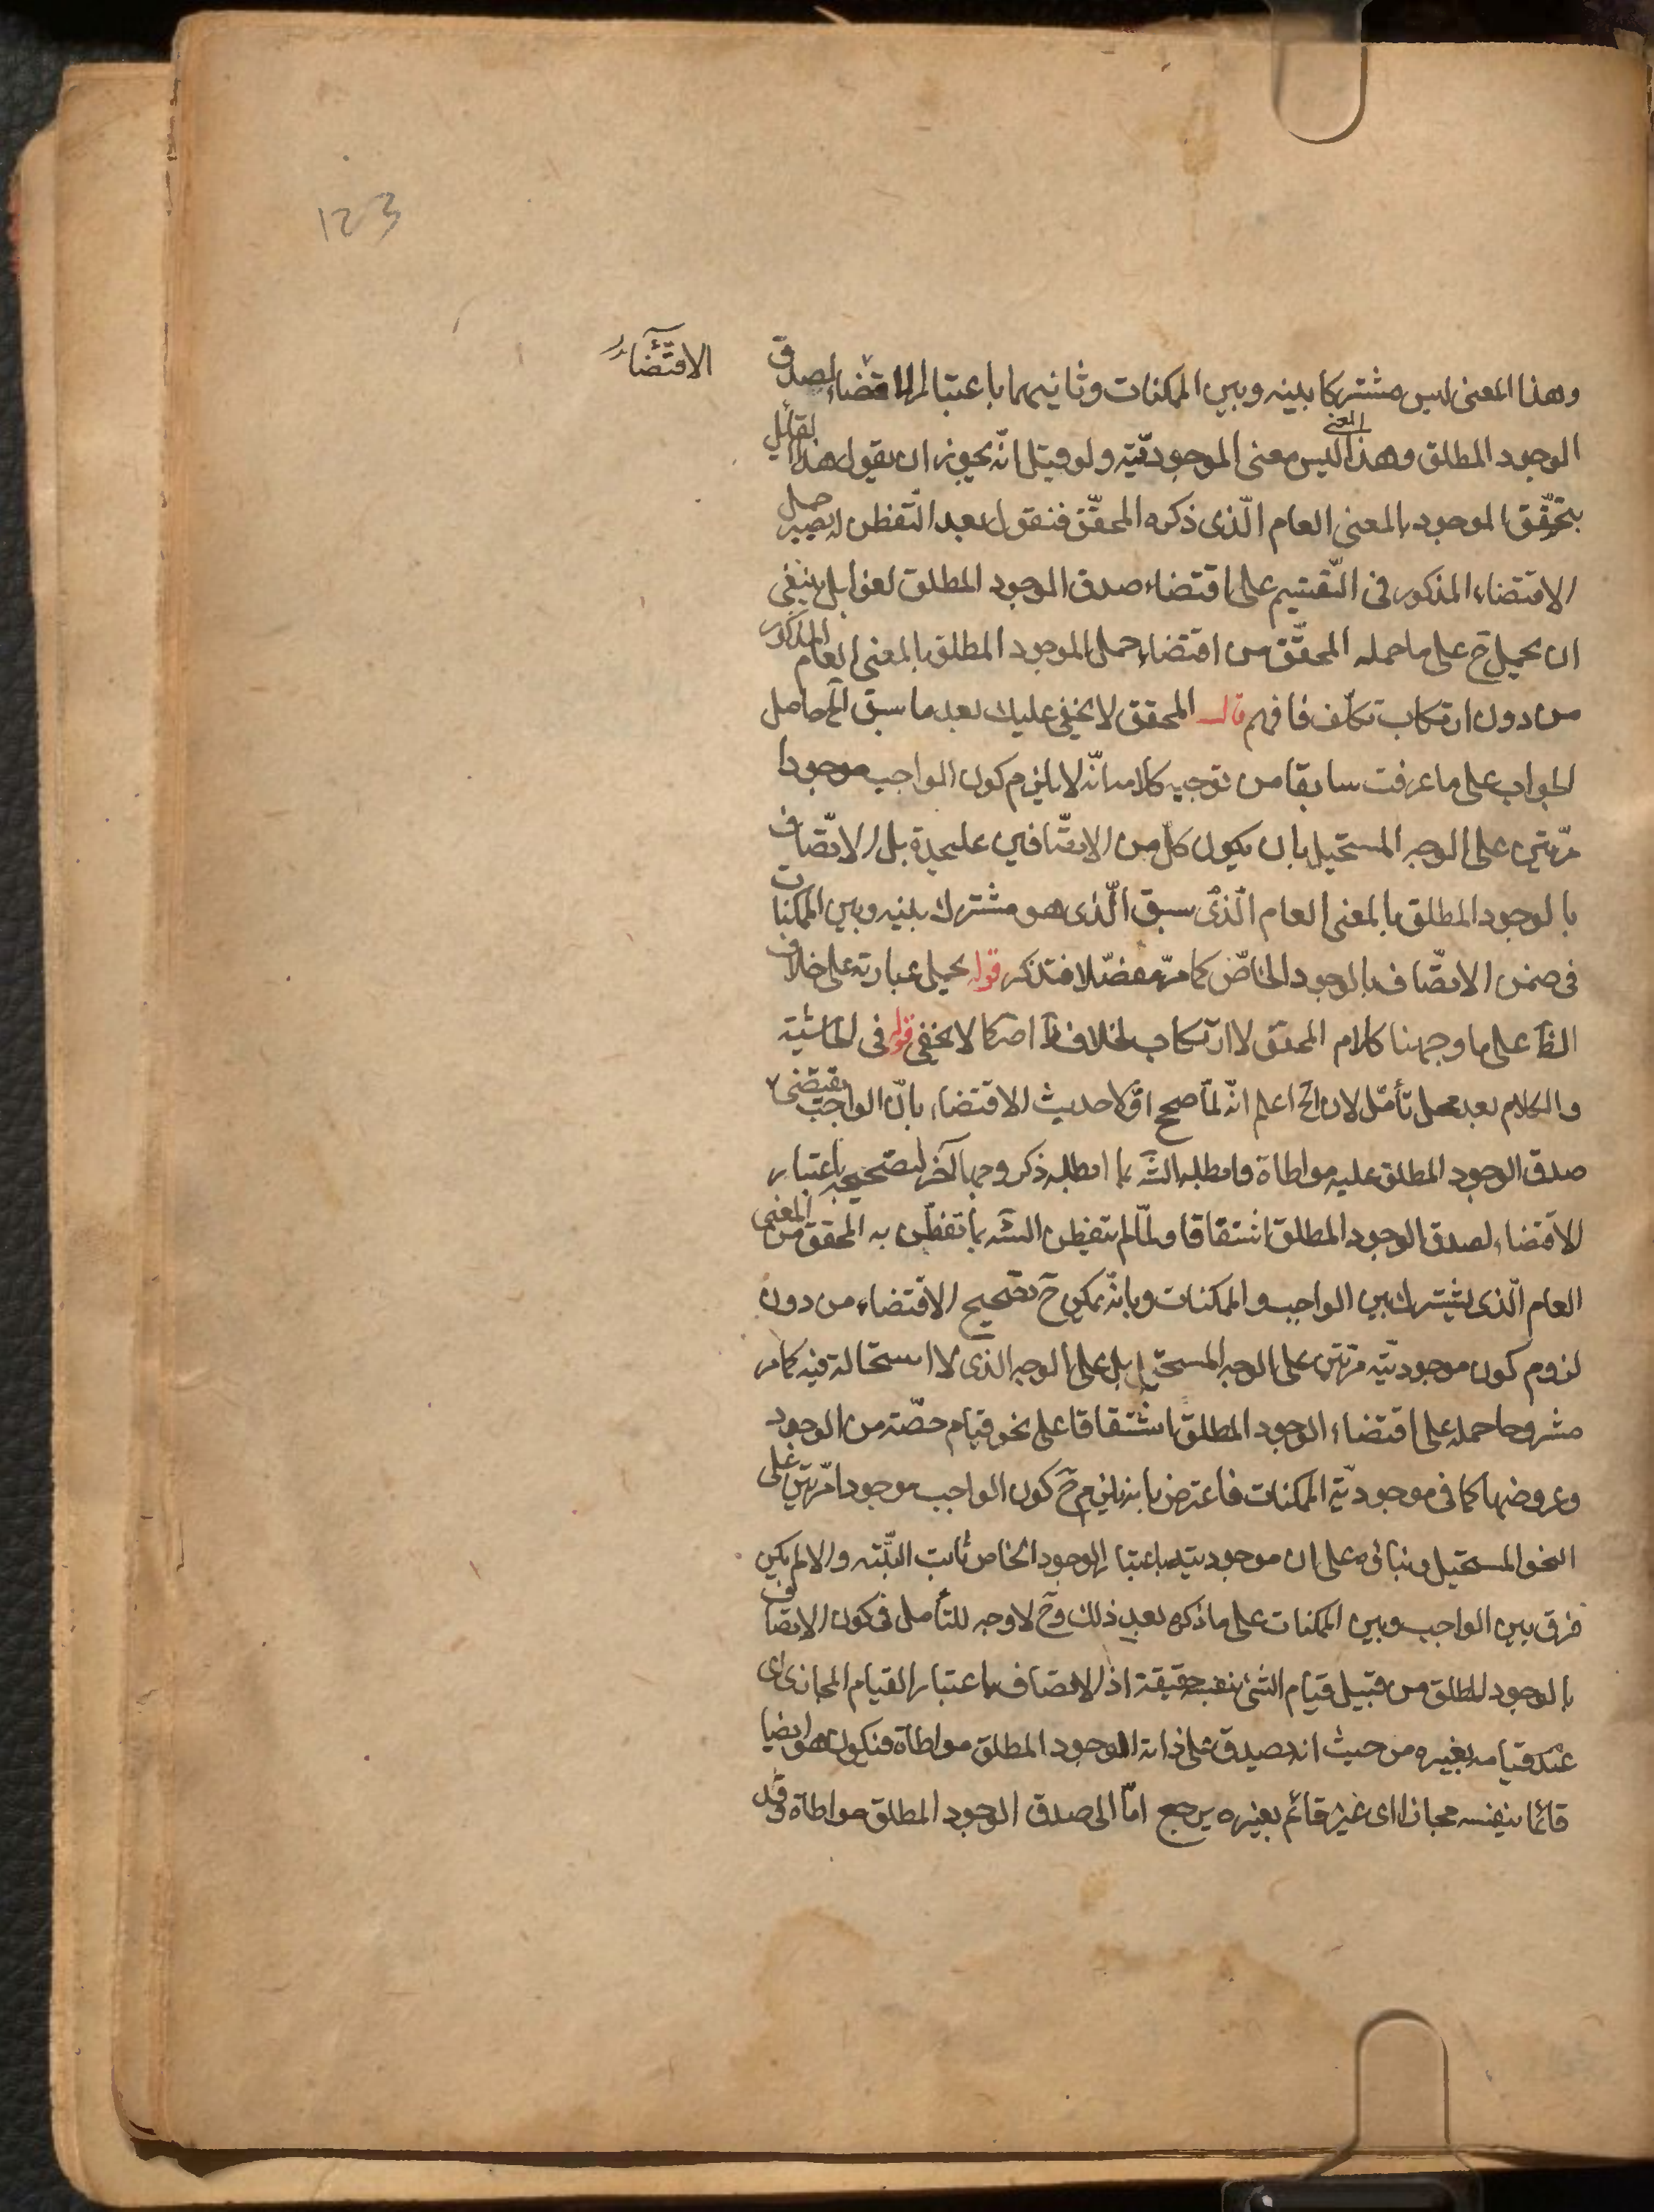 123
الاقتضاء
وهذا المعنى ليس مشتركا بينه وبين الممكنات وثانيهما باعتبار اقتضاء لصدق
الوجود المطلق وهذا المعنى ليس معنى الموجوديّته ولو قيل انّه يجوز ان يقول هذا القائل
بتحقّق الموجود بالمعنى العام الّذى ذكره المحقّق فنقول بعد التّفطن له يصير حمل
الاقتضاء المذكور فى التّقسيم على اقتضاء صدق الوجود المطلق لغوا بل ينبغى
ان يحمل ح على ما حمله المحقّق من اقتضاء حمل الموجود المطلق بالمعنى العام المذكور
من دون ارتكاب تكلّف فافهم قال المحقق لا يخفى عليك بعد ما سبق آلخ حاصل
الجواب على ما عرفت سابقا من توجيه كلامه انّه لا يلزم كون الواجب موجودا
مرّتين على الوجه المستحيل بان يكون كلّ من الاتصّافين عليحدة بل الاتّصاف
بالوجود المطلق بالمعنى العام الّذى سبق الّذى هو مشترك بينه وبين الممكنات
فى ضمن الاتصّاف بالوجود الخاصّ كما مرّ مفصّلا فتذكر قوله يحمل عبارته على خلاف
الظّ على ما وجهنا كلام المحقق لا ارتكاب لخلاف ظ اصلا كما لا يخفى قوله فى الحاشية
والكلام بعد محل تأمّل لان الخ اعلم انّه لمّا صحح اوّلا حديث الاقتضاء بانّ الواجب يقتضى
صدق الوجود المطلق عليه مواطاة وابطله الشّ بما ابطله ذكر وجها آخر لتصحيحه باعتبار
الاقتضاء لصدق الوجود المطلق اشتقاقا ولمّا لم يتفطن الشّ بما تفطّن به المحقق من المعنى
العام الّذى يشترك بين الواجب والممكنات وبانّه يمكن ح تصحيح الاقتضاء من دون
لزوم كون موجوديّته مرّتين على الوجه المستحيل بل على الوجه الذى لا استحالة فيه كما مر
مشروحا حمله على اقتضاء الوجود المطلق اشتقاقا على نحو قيام حصّة من الوجود
وعروضها كما فى موجوديّة الممكنات فاعترض بانه يلزم ح كون الواجب موجودا مرّتين على
النحو المستحيل بناء على ان موجوديته باعتبار الوجود الخاص ثابت البتّة والا لم يكن
فرق بين الواجب وبين الممكنات على ما ذكره بعد ذلك وح لا وجه للتأمل فى كون الاتصاف
بالوجود المطلق من قبيل قيام الشئ بنفسه حقيقة اذ الاتصاف باعتبار القيام المجازى اى
عدم قيامه بغيره من حيث انه يصدق على ذاته الوجود المطلق مواطاة فيكون هو ايضا
قائما بنفسه مجازا اى غير قائم بغيره يرجع امّا الى صدق الوجود المطلق مواطاة وقد